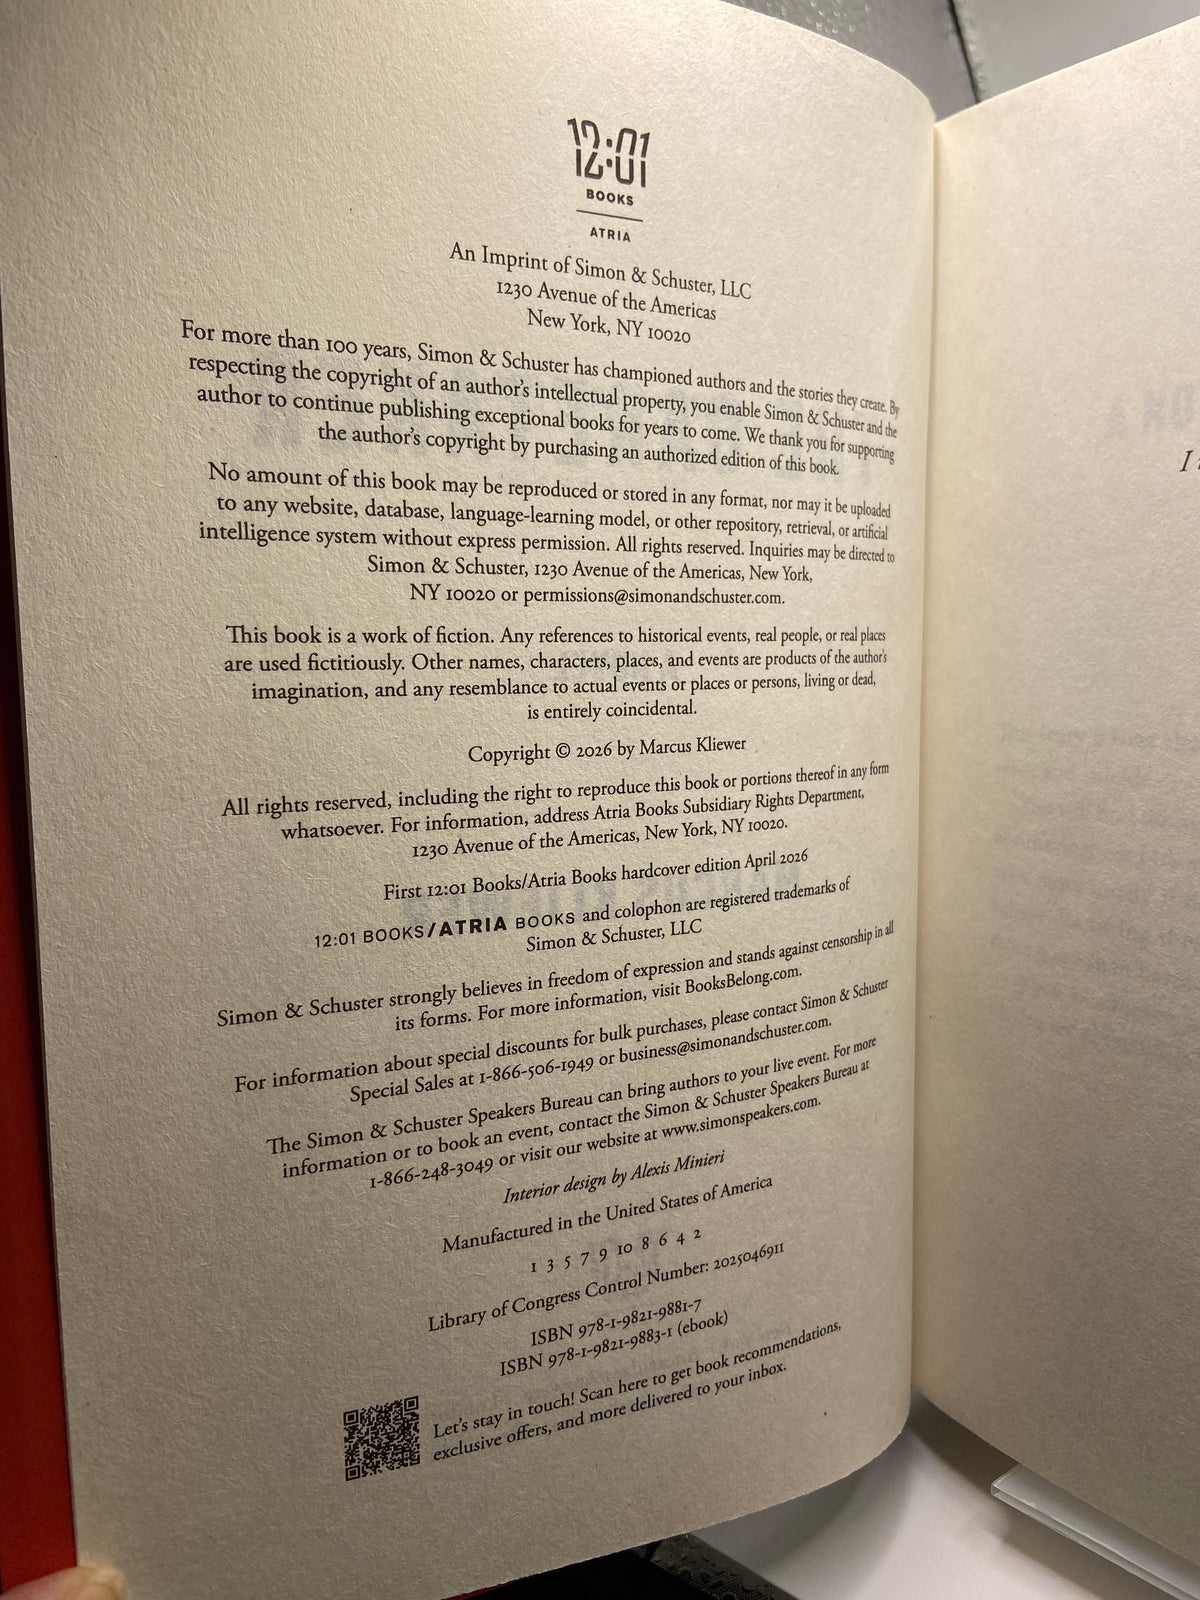 12:01
BOOKS
ATRIA
An Imprint of Simon & Schuster, LLC
1230 Avenue of the Americas
New York, NY 10020
For more than 100 years, Simon & Schuster has championed authors and the stories they create. By
respecting the copyright of an author's intellectual property, you enable Simon & Schuster and the
author to continue publishing exceptional books for years to come. We thank you for supporting
the author's copyright by purchasing an authorized edition of this book.
No amount of this book may be reproduced or stored in any format, nor may it be uploaded
to any website, database, language-learning model, or other repository, retrieval, or artificial
intelligence system without express permission. All rights reserved. Inquiries may be directed to
Simon & Schuster, 1230 Avenue of the Americas, New York,
NY 10020 or permissions@simonandschuster.com.
This book is a work of fiction. Any references to historical events, real people, or real places
are used fictitiously. Other names, characters, places, and events are products of the author's
imagination, and any resemblance to actual events or places or persons, living or dead,
is entirely coincidental.
Copyright © 2026 by Marcus Kliewer
All rights reserved, including the right to reproduce this book or portions thereof in any form
whatsoever. For information, address Atria Books Subsidiary Rights Department,
1230 Avenue of the Americas, New York, NY 10020.
First 12:01 Books/Atria Books hardcover edition April 2026
12:01 BOOKS/ATRIA BOOKS and colophon are registered trademarks of
Simon & Schuster, LLC
Simon & Schuster strongly believes in freedom of expression and stands against censorship in all
its forms. For more information, visit BooksBelong.com.
For information about special discounts for bulk purchases, please contact Simon & Schuster
Special Sales at 1-866-506-1949 or business@simonandschuster.com.
The Simon & Schuster Speakers Bureau can bring authors to your live event. For more
information or to book an event, contact the Simon & Schuster Speakers Bureau at
1-866-248-3049 or visit our website at www.simonspeakers.com.
Interior design by Alexis Minieri
Manufactured in the United States of America
1 3 5 7 9 10 8 6 4 2
Library of Congress Control Number: 2025046911
ISBN 978-1-9821-9881-7
ISBN 978-1-9821-9883-1 (ebook)
Let's stay in touch! Scan here to get book recommendations,
exclusive offers, and more delivered to your inbox.
I